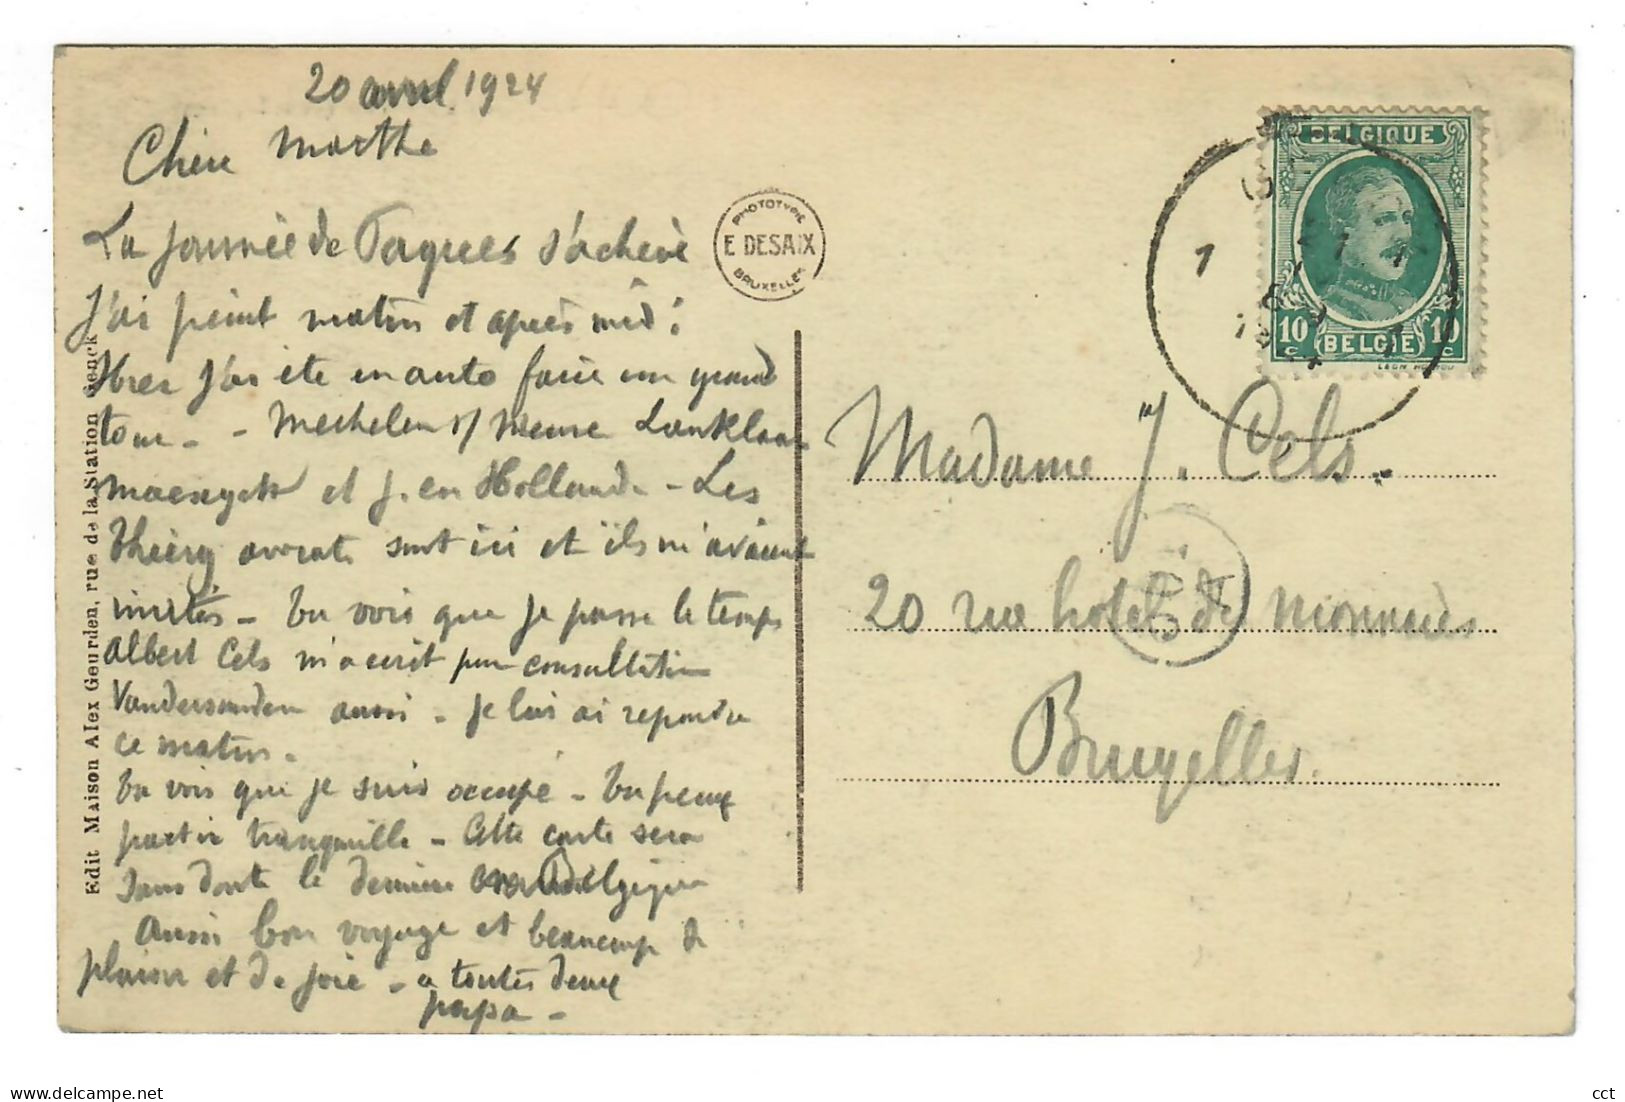 20 avril 1924
Chère Marthe
La journée de Pâques s'achève
J'ai peint matin et après mid:
Hier j'ai été en auto faire un grand
tour - - Mechelen s/ Meuse Lanklaar
Maeseyck et j. en Hollande - Les
Thiéry avocats sont ici et ils m'avaient
invités - tu vois que je passe le temps
Albert Cels m'a écrit pour consultation
Vandersanden aussi - je lui ai répondu
ce matin -
tu vois que je suis occupé - tu peux
partir tranquille - Cette carte sera
sans doute la dernière Belgique
Aussi bon voyage et beaucoup de
plaisir et de joie - a toutes deux
papa -
Edit Maison Alex Geurden, rue de la Station Genck
PHOTOTYPIE
E DESAIX
BRUXELLES
BELGIQUE
10 c 10 c
BELGIË
1
Madame J. Cels.
20 rue hotel de Monnaies
Bruxelles.
delcampe.net
cct